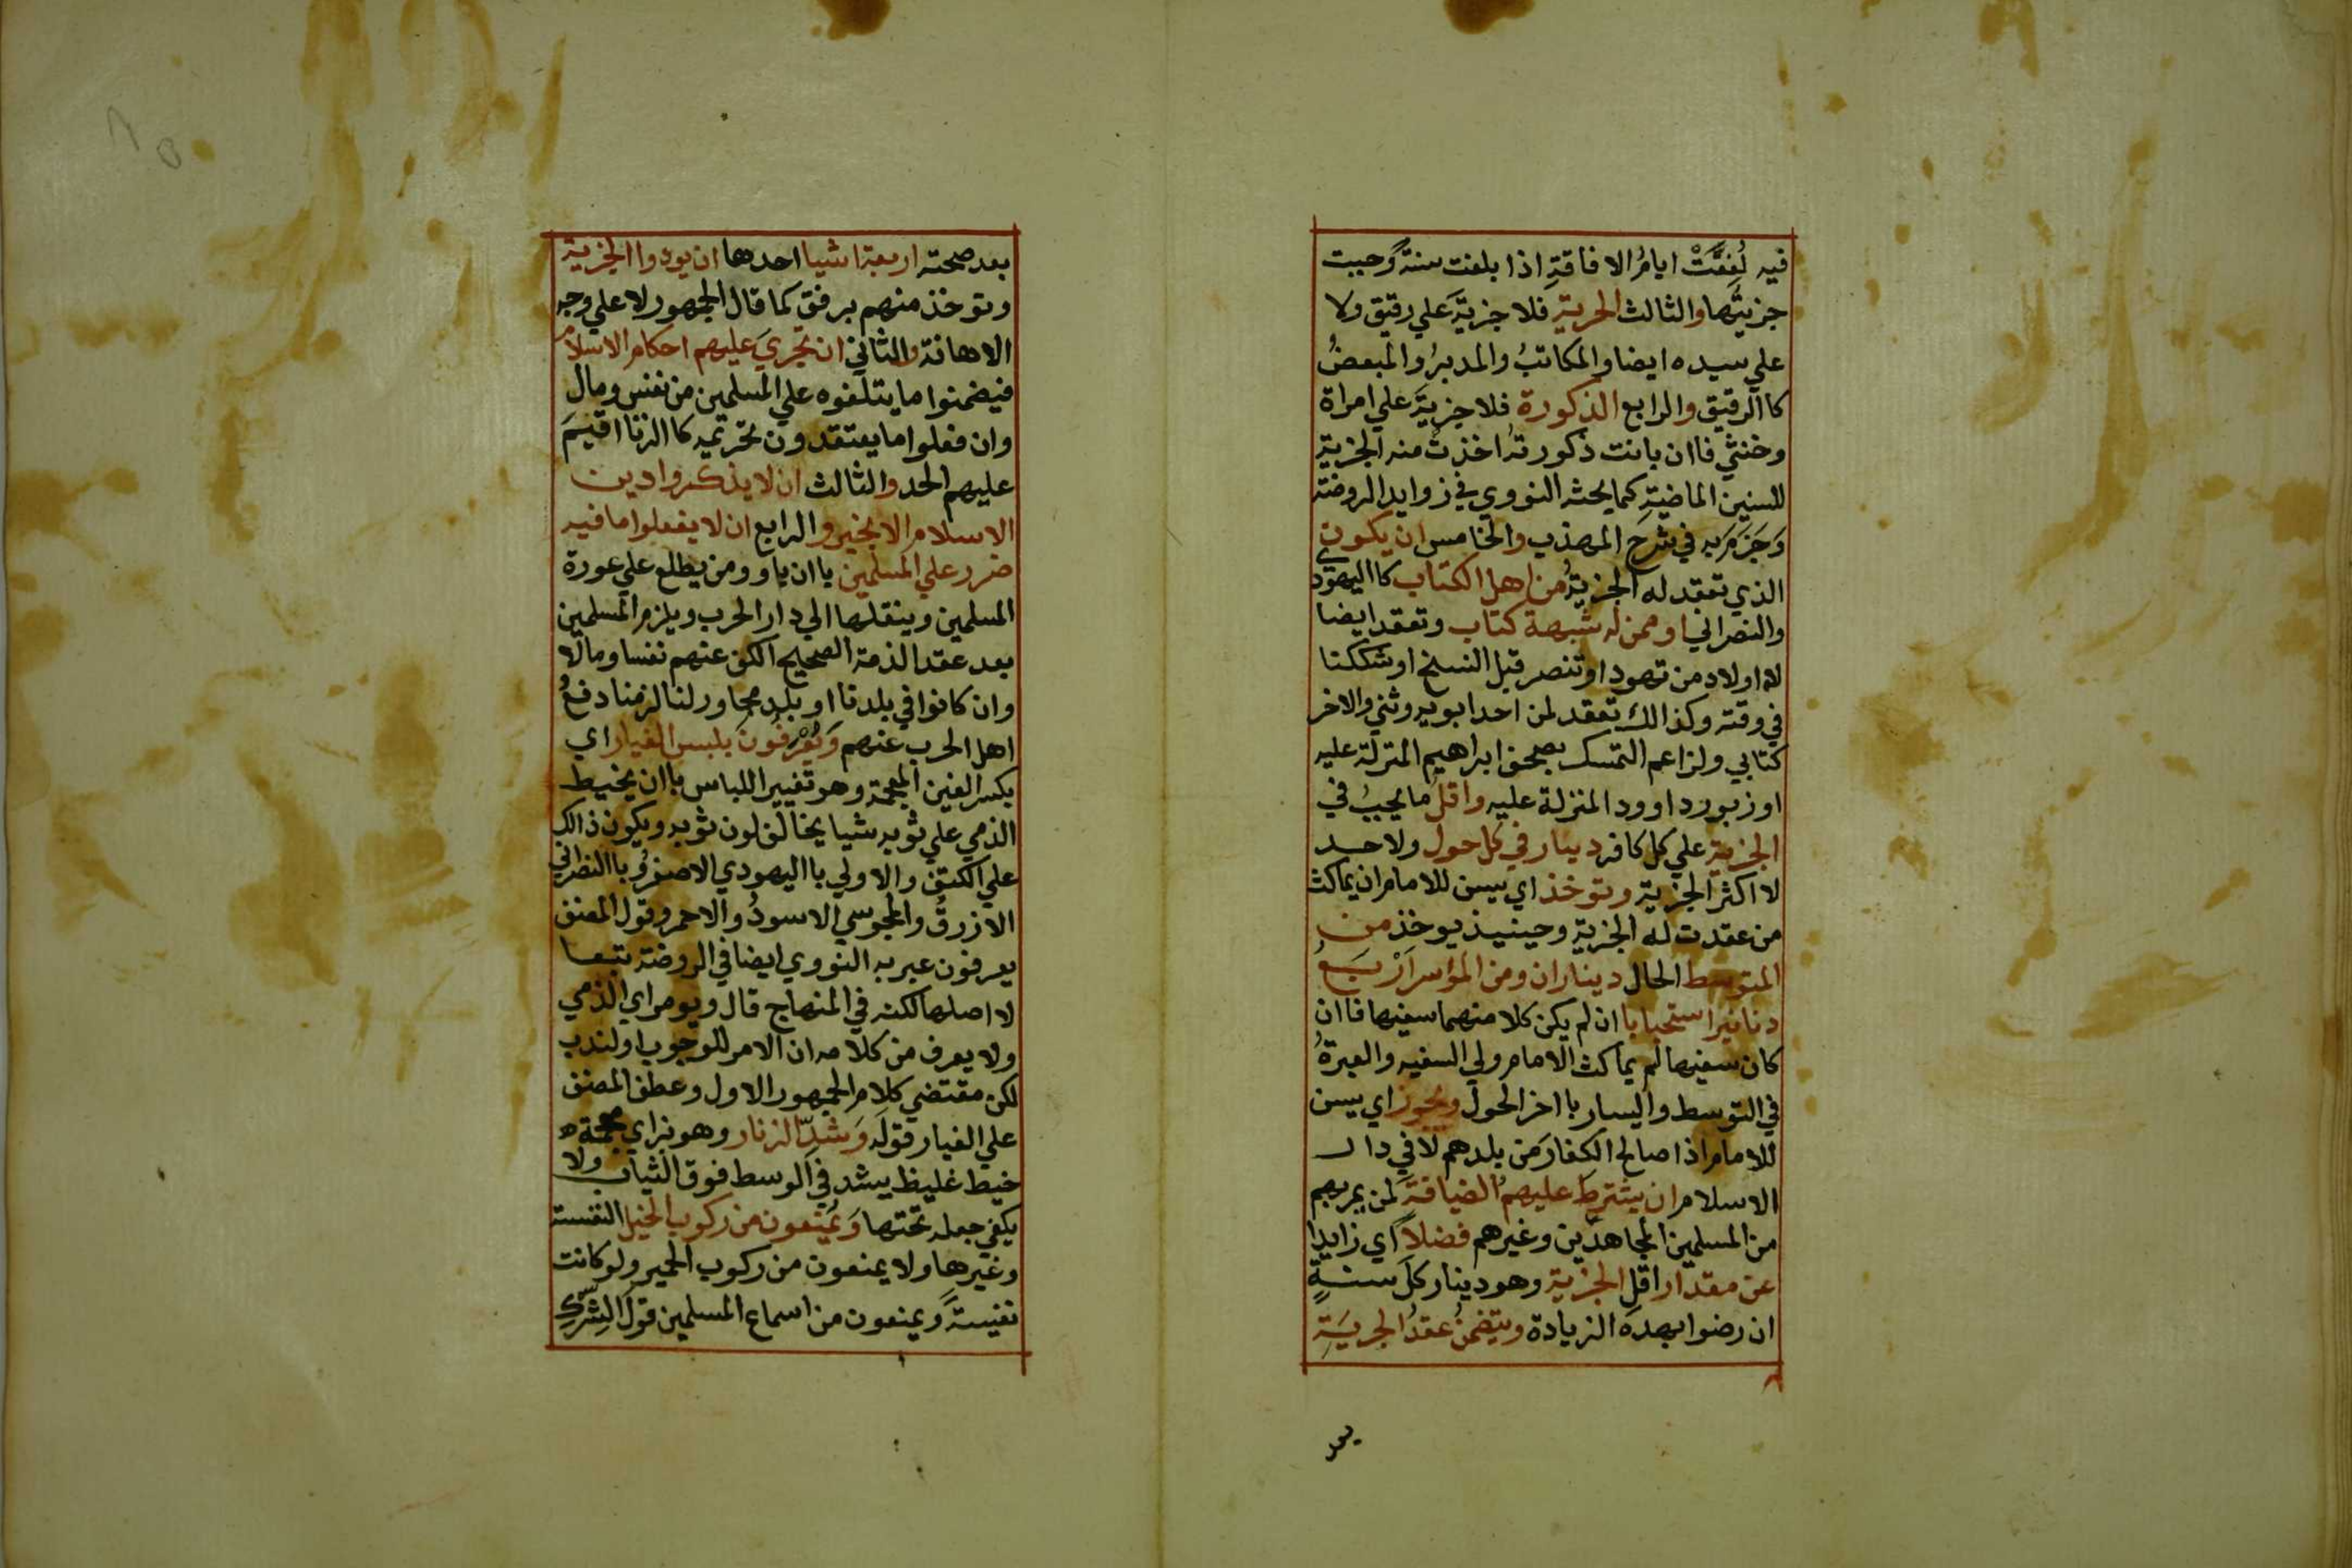 فيه لُفِقَتْ ايامُ الافاقةِ اذا بلغت سنةً وجبت
جزيتُها والثالث الحرية فلا جزيةَ علي رقيق ولا
علي سيده ايضا والمكاتبُ والمدبرُ والمبعضُ
كاالرقيق والرابع الذكورة فلا جزيةَ علي امراة
وخنثي فاان بانت ذكورتهُ اخذت منه الجزية
للسنين الماضيةِ كما بحثه النووي في زوايد الروضة
وَجَزَمَ به في شرح المهذب والخامس ان يكون
الذي تعقد له الجزيةُ من اهل الكتاب كااليهودي
والنصراني او ممن له شبهة كتاب وتعقد ايضا
لااولاد من تهود او تنصر قبل النسخ او شككنا
في وقته وكذالك تعقد لمن احد ابويه وثني والاخر
كتابي ولزاعم التمسك بصحف ابراهيم المنزلة عليه
او زبور داوود المنزلة عليه واقل ما يجبُ في
الجزية علي كل كافر دينار في كل حول ولا حد
لااكثر الجزية وتوخذ اي يسن للامام ان يماكث
من عقدت له الجزية وحينيذ يوخذ من
المتوسط الحال ديناران ومن المواسر اَرْبَعُ
دنانير استحبابا ان لم يكن كلا منهما سفيها فاان
كان سفيها لم يماكث الامام ولي السفيه والعبرةُ
في التوسط واليسار بااخر الحول ويجوز اي يسن
للامام اذا صالح الكفارَ من بلدهم لا في دار
الاسلام ان يشترطَ عليهم الضيافةَ لمن يمر بهم
من المسلمين المجاهدين وغيرهم فضلاً اي زايدا
عن مقدار اقلِ الجزية وهو دينار كلَ سنةٍ
ان رضوا بهده الزيادة ويتضمنُ عقدُ الجريَةِ
بعد صحته اربعة اشيا احدها ان يودوا الجزية
وتوخذ منهم برفق كما قال الجمهور لا علي وجه
الاهانة والثاني ان تجريَ عليهم احكام الاسلام
فيضمنوا ما يتلفوه علي المسلمين من نفس ومال
وان فعلوا ما يعتقدون تحريمه كاالزنا اقيمَ
عليهم الحد والثالث ان لا يذكروا دين
الاسلام الا بخير والرابع ان لا يفعلوا ما فيه
ضرر علي المسلمين باان ياوو من يطلع علي عورة
المسلمين وينقلها الي دار الحرب ويلزم المسلمين
بعد عقد الذمة الصحيح الكف عنهم نفسا ومالا
وان كانوا في بلدنا او بلد مجاور لنا لزمنا دفعُ
اهل الحرب عنهم وَيُعْرَفُونَ بلبس الغيار اي
بكسر الغين المعجمة وهو تغيير اللباس باان يخيط
الذمي علي ثوبه شيا يخالف لون ثوبه ويكون ذالك
علي الكتف والاولي بااليهودي الاصفرُ وباالنصراني
الازرقُ والمجوسي الاسودُ والاحمر وقول المصنف
يعرفون عبر به النووي ايضا في الروضة تبعا
لااصلها لكنه في المنهاج قال ويومر اي الذمي
ولا يعرف من كلامه ان الامر للوجوب او لندب
لكن مقتضي كلام الجمهور الاول وعطف المصنف
علي الغيار قوله وَشدِّ الزنار وهو بزاي معجمة
خيط غليظ يشد في الوسط فوق الثياب ولا
يكفي جعله تحتها وَيُمنعون من ركوب الخيل النفسة
وغيرها ولا يمنعون من ركوب الحمير ولو كانت
نفيسةً ويمنعون من اسماع المسلمين قولَ الشركِ